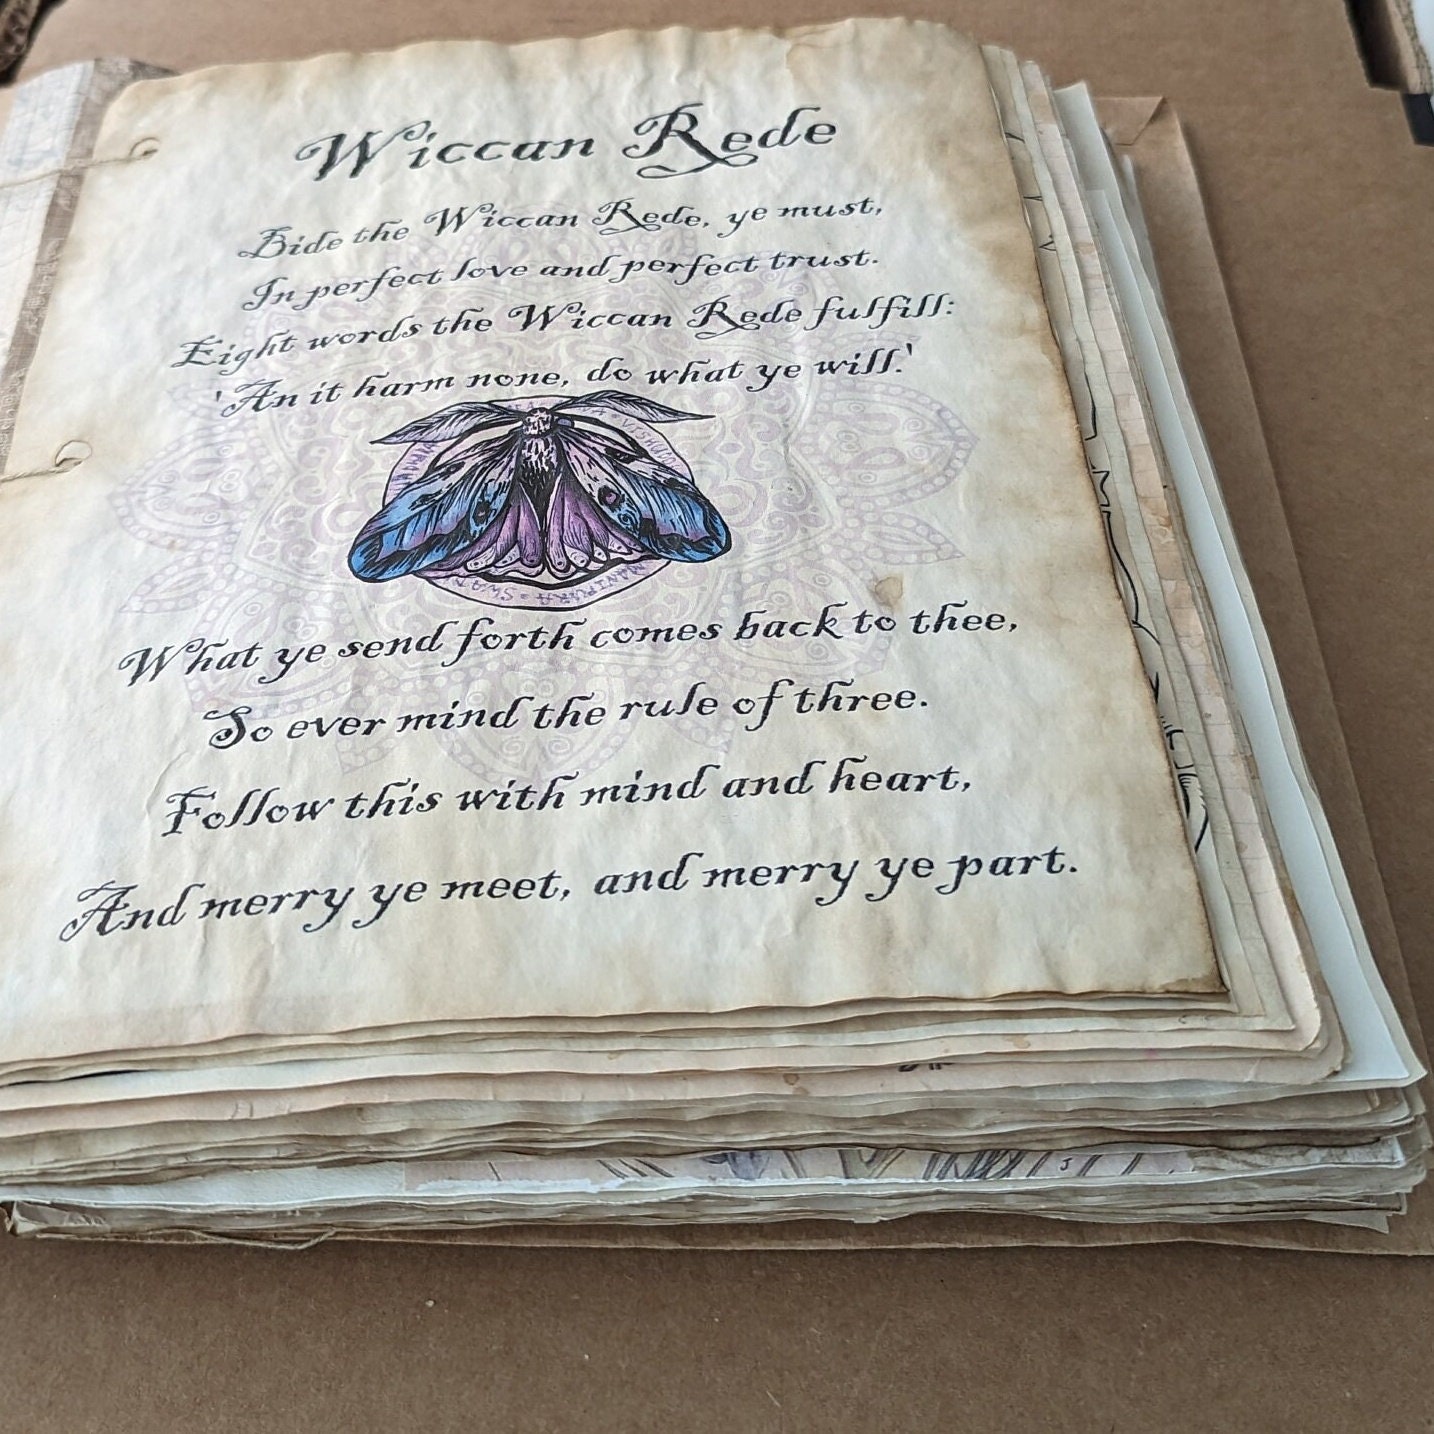 Wiccan Rede
Bide the Wiccan Rede, ye must,
In perfect love and perfect trust.
Eight words the Wiccan Rede fulfill:
'An it harm none, do what ye will.'
What ye send forth comes back to thee,
So ever mind the rule of three.
Follow this with mind and heart,
And merry ye meet, and merry ye part.